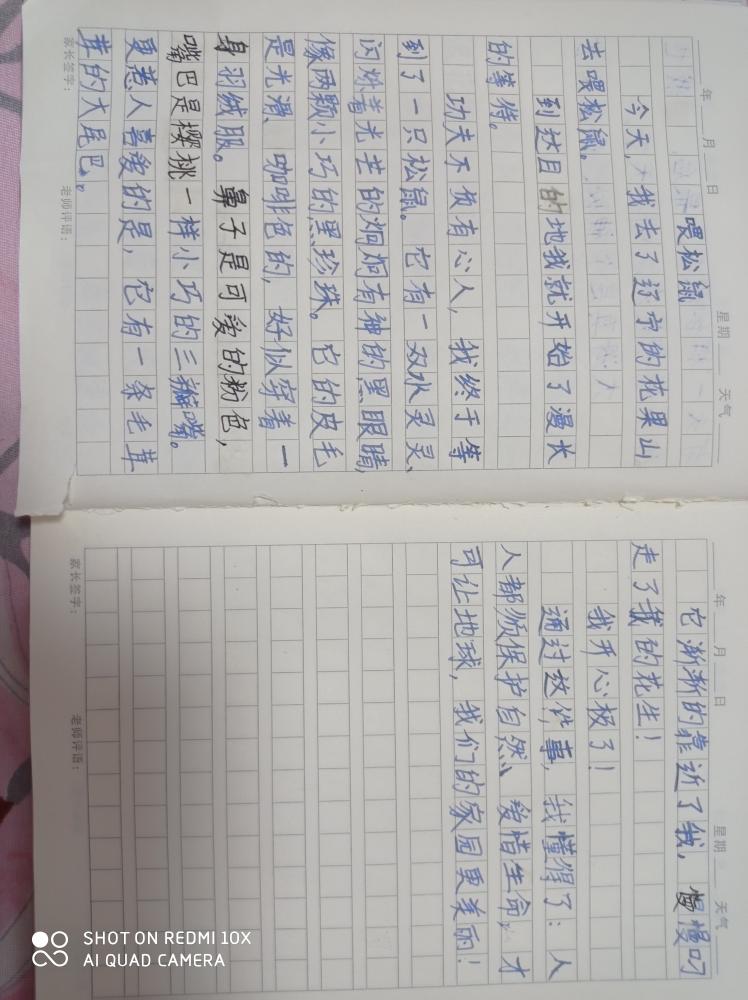 年 月 日 星期 天气
喂松鼠
今天，我去了辽宁的花果山
去喂松鼠。
到达目的地我就开始了漫长
的等待。
功夫不负有心人，我终于等
到了一只松鼠。它有一双水灵灵、
闪烁着光芒的炯炯有神的黑眼睛，
像两颗小巧的黑珍珠。它的皮毛
是光滑、咖啡色的，好似穿着一
身羽绒服。鼻子是可爱的粉色，
嘴巴是樱桃一样小巧的三瓣嘴。
更惹人喜爱的是，它有一条毛茸
茸的大尾巴。
家长签字： 老师评语：
年 月 日 星期 天气
它渐渐的靠近了我，慢慢叼
走了我的花生！
我开心极了！
通过这件事，我懂得了：人
人都须保护自然、爱惜生命，才
可让地球，我们的家园更美丽！
家长签字： 老师评语：
SHOT ON REDMI 10X
AI QUAD CAMERA